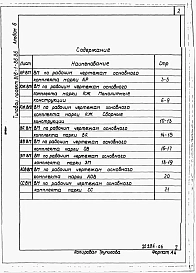 2
Содержание
Лист Наименование Стр
ВМ по рабочим чертежам основного
комплекта марки АР 3-5
ВМ по рабочим чертежам основного
комплекта марки КЖ Монолитные
конструкции 6-9
ВМ по рабочим чертежам основного
комплекта марки КЖ Сборные
конструкции 10-13
ВМ по рабочим чертежам основного
комплекта марки 14-15
ВМ по рабочим чертежам основного
комплекта марки ОВ 16-17
ВМ по рабочим чертежам основного
комплекта марки 18-19
ВМ по рабочим чертежам основного
комплекта марки 20
ВМ по рабочим чертежам основного
комплекта марки СС 21
Копировал
Формат А4